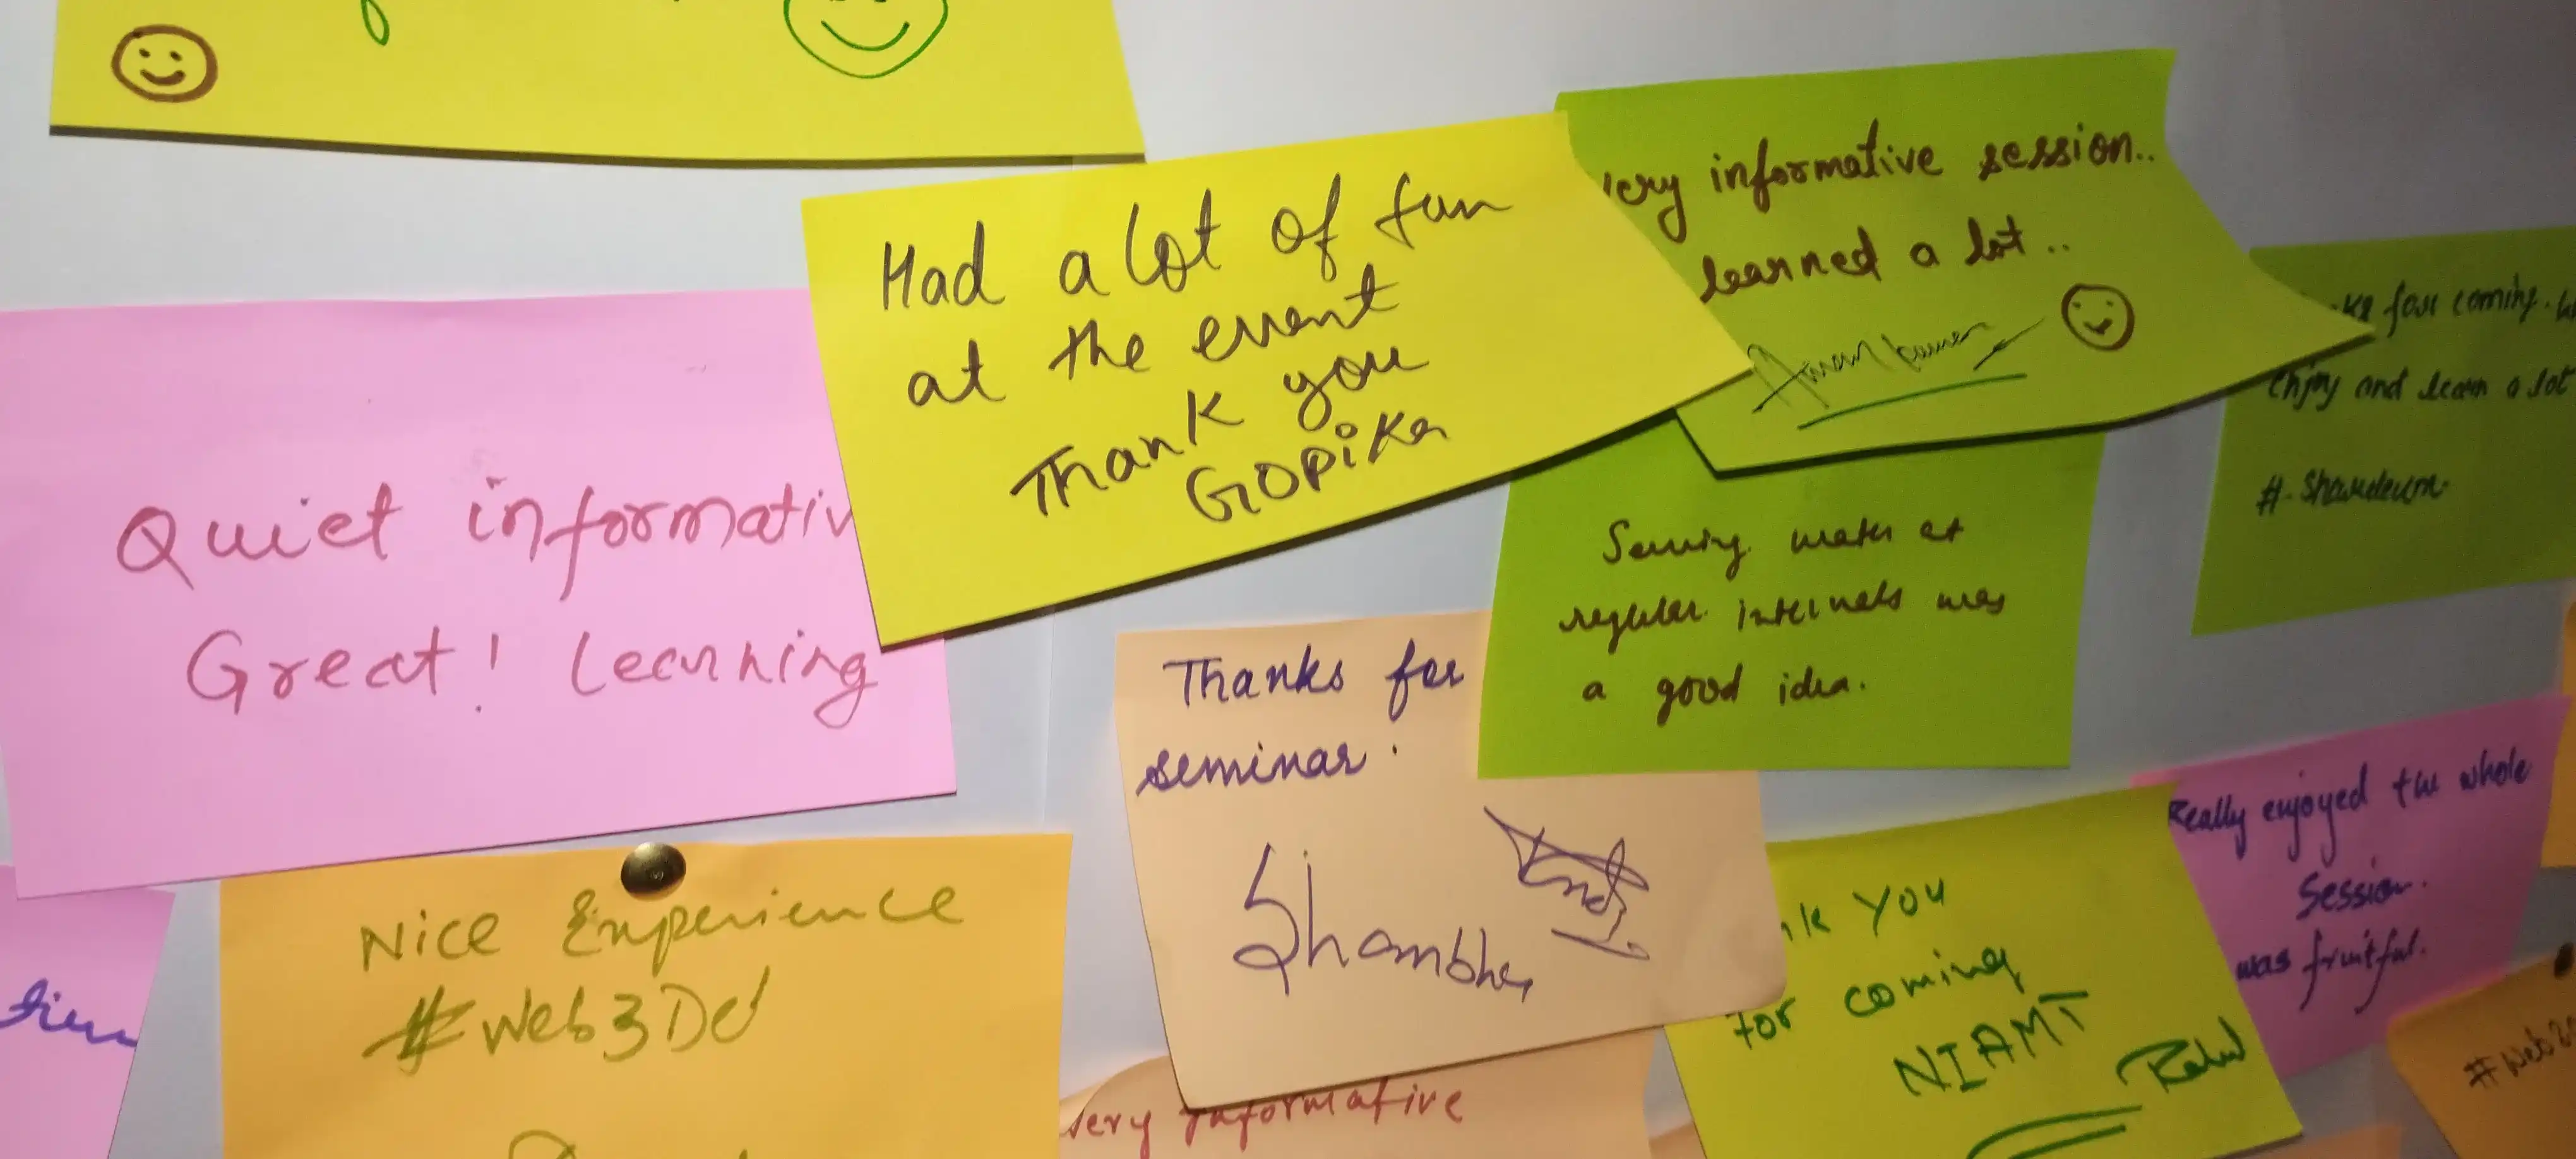 Had a lot of fun
at the event
Thank you
GOPiKa
very informative session..
learned a lot..
for coming.
enjoy and learn a lot
Quiet informativ
Great! Learning
Serving water at
regular intervals was
a good idea.
Thanks for
seminar.
Really enjoyed the whole
Session.
was fruitful.
Nice Experience
#Web3Dd
nk You
For coming
NIAMT
very Informative